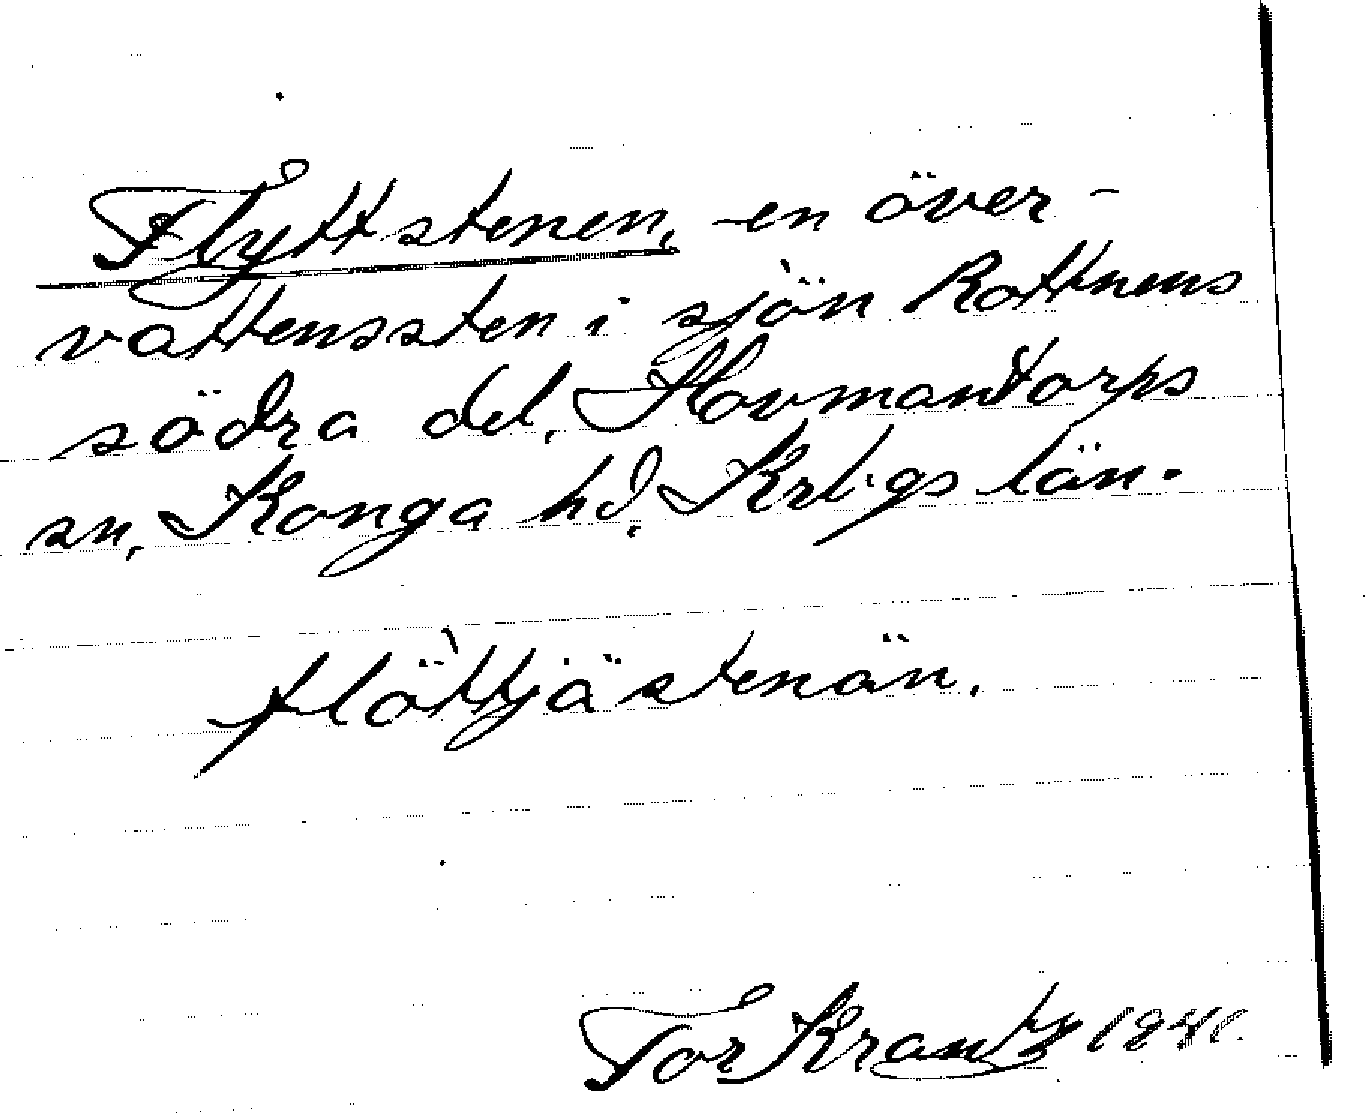 Flyttstenen, en över-
vattenssten i sjön Rottnens
södra del. Hovmantorps
sn, Konga hd. Krbgs län.
flöttjästenän.
Tor Krantz 1941.